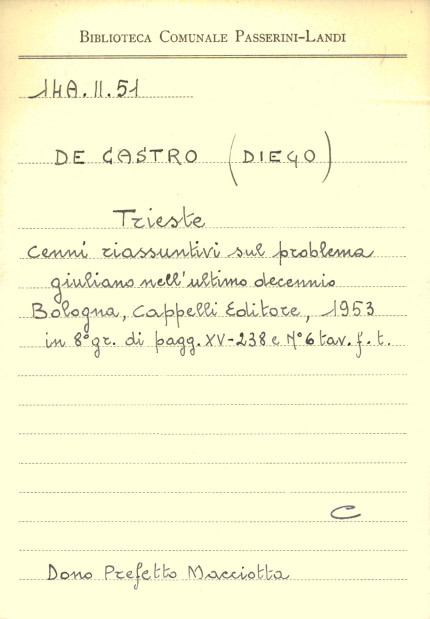 BIBLIOTECA COMUNALE PASSERINI-LANDI
14A.II.51
DE CASTRO (DIEGO)
Trieste
Cenni riassuntivi sul problema
giuliano nell'ultimo decennio
Bologna, Cappelli Editore, 1953
in 8° gr. di pagg. XV-238 e N° 6 tav. f. t.
C
Dono Prefetto Macciotta